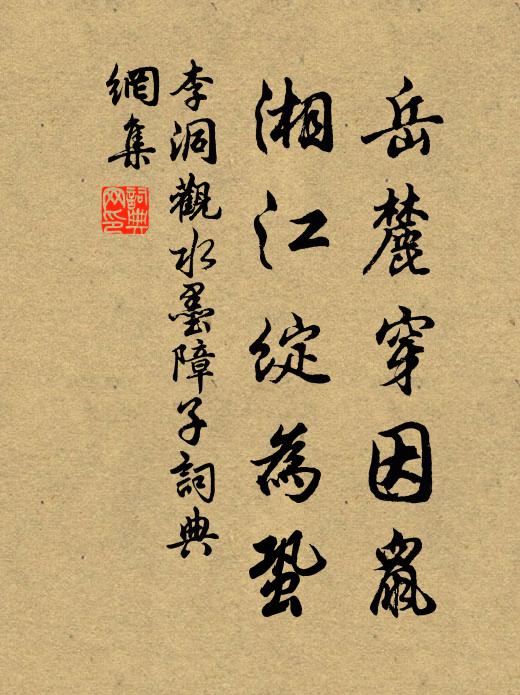 岳麓穿因鼠
湘江綻為蛩
李洞觀水墨障子詞典
網集
詞典
网印